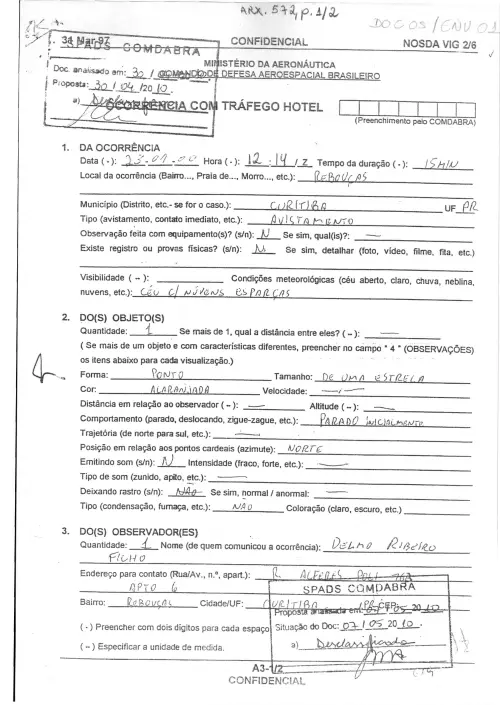 ARX. 572, p. 1/2
DOC 05 / ENV 01
31 Mar 97
SPADS COMDABRA
CONFIDENCIAL
NOSDA VIG 2/6
Doc. analisado em: 30 /
MINISTÉRIO DA AERONÁUTICA
COMANDO DE DEFESA AEROESPACIAL BRASILEIRO
Proposta: 30 / 04 /2010.
a) Desclassificado
OCORRÊNCIA COM TRÁFEGO HOTEL
(Preenchimento pelo COMDABRA)
1. DA OCORRÊNCIA
Data ( - ): 23-01-00 Hora ( - ): 12 : 14 / Z Tempo da duração ( - ): 15 MIN
Local da ocorrência (Bairro..., Praia de..., Morro..., etc.): REBOUÇAS
Município (Distrito, etc.- se for o caso.): CURITIBA UF PR
Tipo (avistamento, contato imediato, etc.): AVISTAMENTO
Observação feita com equipamento(s)? (s/n): N Se sim, qual(is)?: —
Existe registro ou provas físicas? (s/n): N Se sim, detalhar (foto, vídeo, filme, fita, etc.)
Visibilidade ( -- ): Condições meteorológicas (céu aberto, claro, chuva, neblina,
nuvens, etc.): CÉU C/ NUVENS ESPARÇAS
2. DO(S) OBJETO(S)
Quantidade: 1 Se mais de 1, qual a distância entre eles? ( -- ): —
( Se mais de um objeto e com características diferentes, preencher no campo " 4 " (OBSERVAÇÕES)
os itens abaixo para cada visualização.)
Forma: PONTO Tamanho: DE UMA ESTRELA
Cor: ALARANJADA Velocidade: —
Distância em relação ao observador ( -- ): — Altitude ( -- ): —
Comportamento (parado, deslocando, zigue-zague, etc.): PARADO INICIALMENTE
Trajetória (de norte para sul, etc.): —
Posição em relação aos pontos cardeais (azimute): NORTE
Emitindo som (s/n): N Intensidade (fraco, forte, etc.): —
Tipo de som (zunido, apito, etc.): —
Deixando rastro (s/n): NÃO Se sim, normal / anormal: —
Tipo (condensação, fumaça, etc.): NÃO Coloração (claro, escuro, etc.)
3. DO(S) OBSERVADOR(ES)
Quantidade: 1 Nome (de quem comunicou a ocorrência): DELMO RIBEIRO
FILHO
Endereço para contato (Rua/Av., n.º, apart.): R. ALFERES POLI
APTO 6
SPADS COMDABRA
Bairro: REBOUÇAS Cidade/UF: CURITIBA /PR CEP:
Proposta analisada em: 07 / 05 20 10
( - ) Preencher com dois dígitos para cada espaço
Situação do Doc: 07 / 05 20 10 .
( -- ) Especificar a unidade de medida.
a) Desclassificado
A3-1/2
CONFIDENCIAL